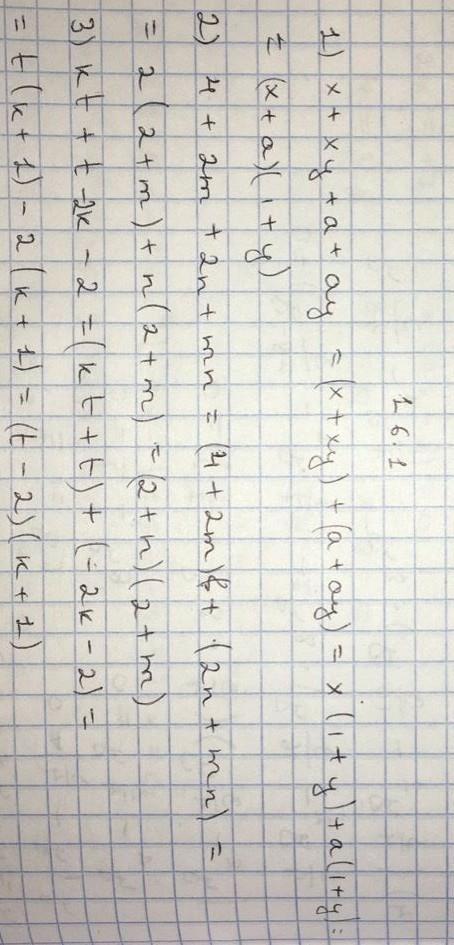 16.1
1) x + xy + a + ay = (x + xy) + (a + ay) = x (1 + y) + a (1+y) =
= (x + a)(1 + y)
2) 4 + 2m + 2n + mn = (4 + 2m) + (2n + mn) =
= 2 (2 + m) + n (2 + m) = (2 + n)(2 + m)
3) kt + t - 2k - 2 = (kt + t) + (-2k - 2) =
= t (k + 1) - 2 (k + 1) = (t - 2)(k + 1)